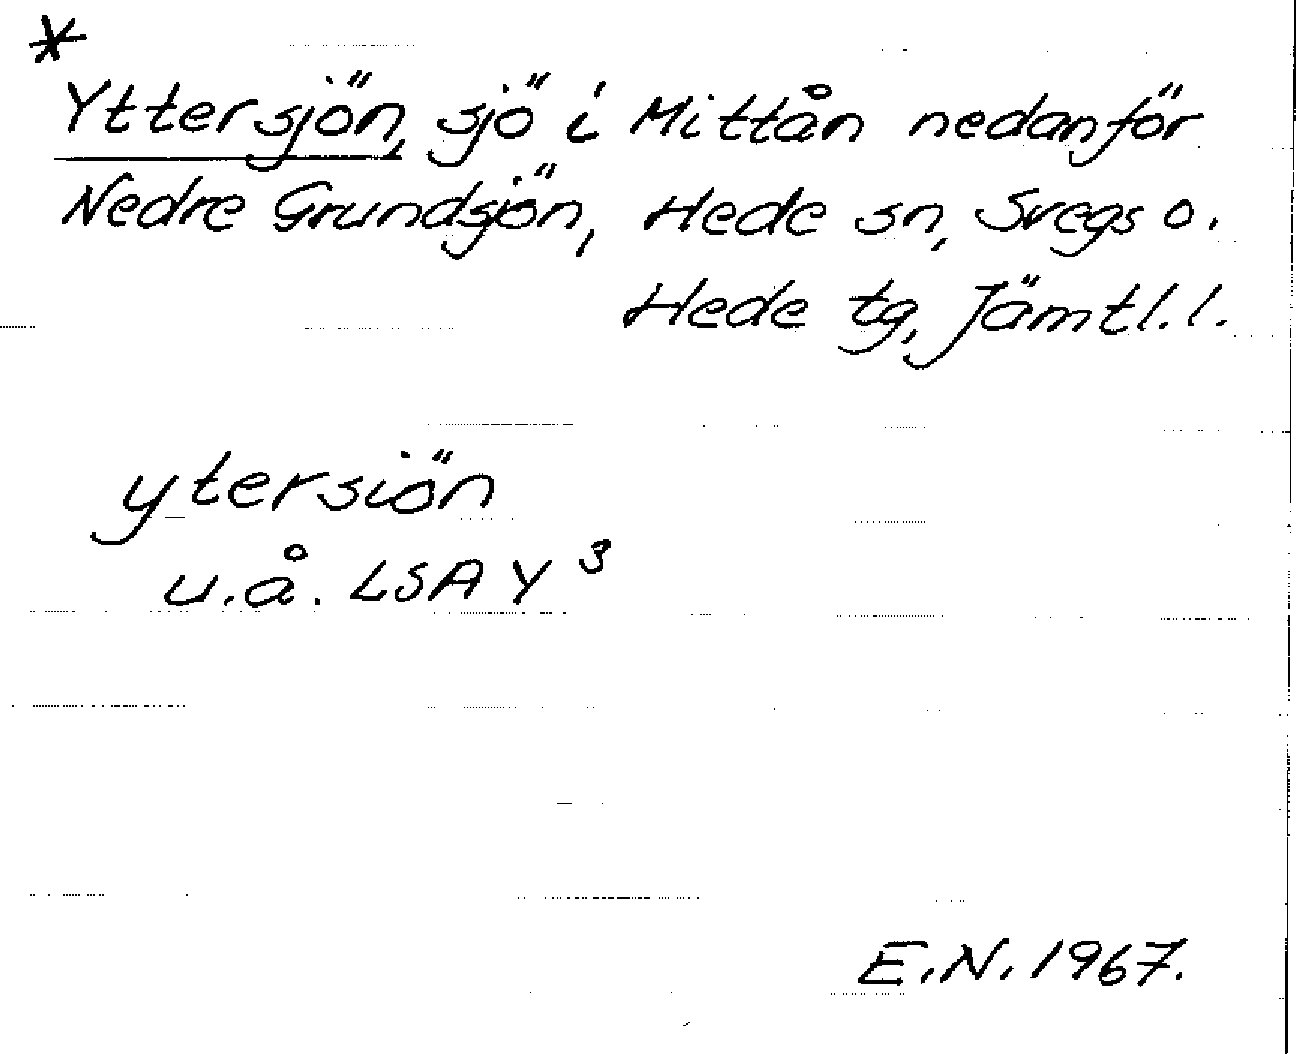 *
Yttersjön, sjö i Mittån nedanför
Nedre Grundsjön, Hede sn, Svegs o.
Hede tg, Jämtl. l.
ytersiön
u.å. LSA Y 3
E.N. 1967.